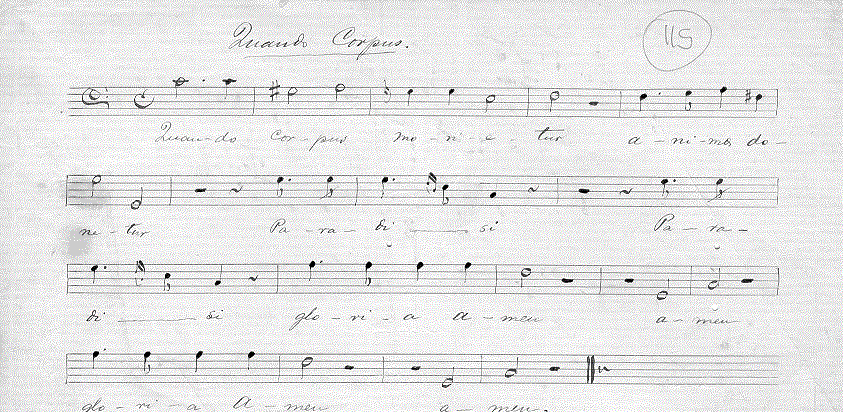 Quando Corpus.
115
Quan-do cor-pus mo-ri-e-tur a-ni-ma do-
ne-tur Pa-ra-di-si Pa-ra-
di-si glo-ri-a a-men a-men
glo-ri-a a-men a-men.